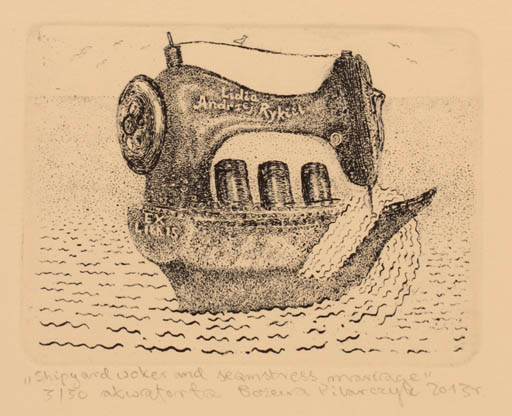 Lidia
Andrzej Rykit
EX
LIBRIS
„Shipyard woker and seamstress marriage"
3/50 akwaforta Bożena Pilarczyk 2013r.